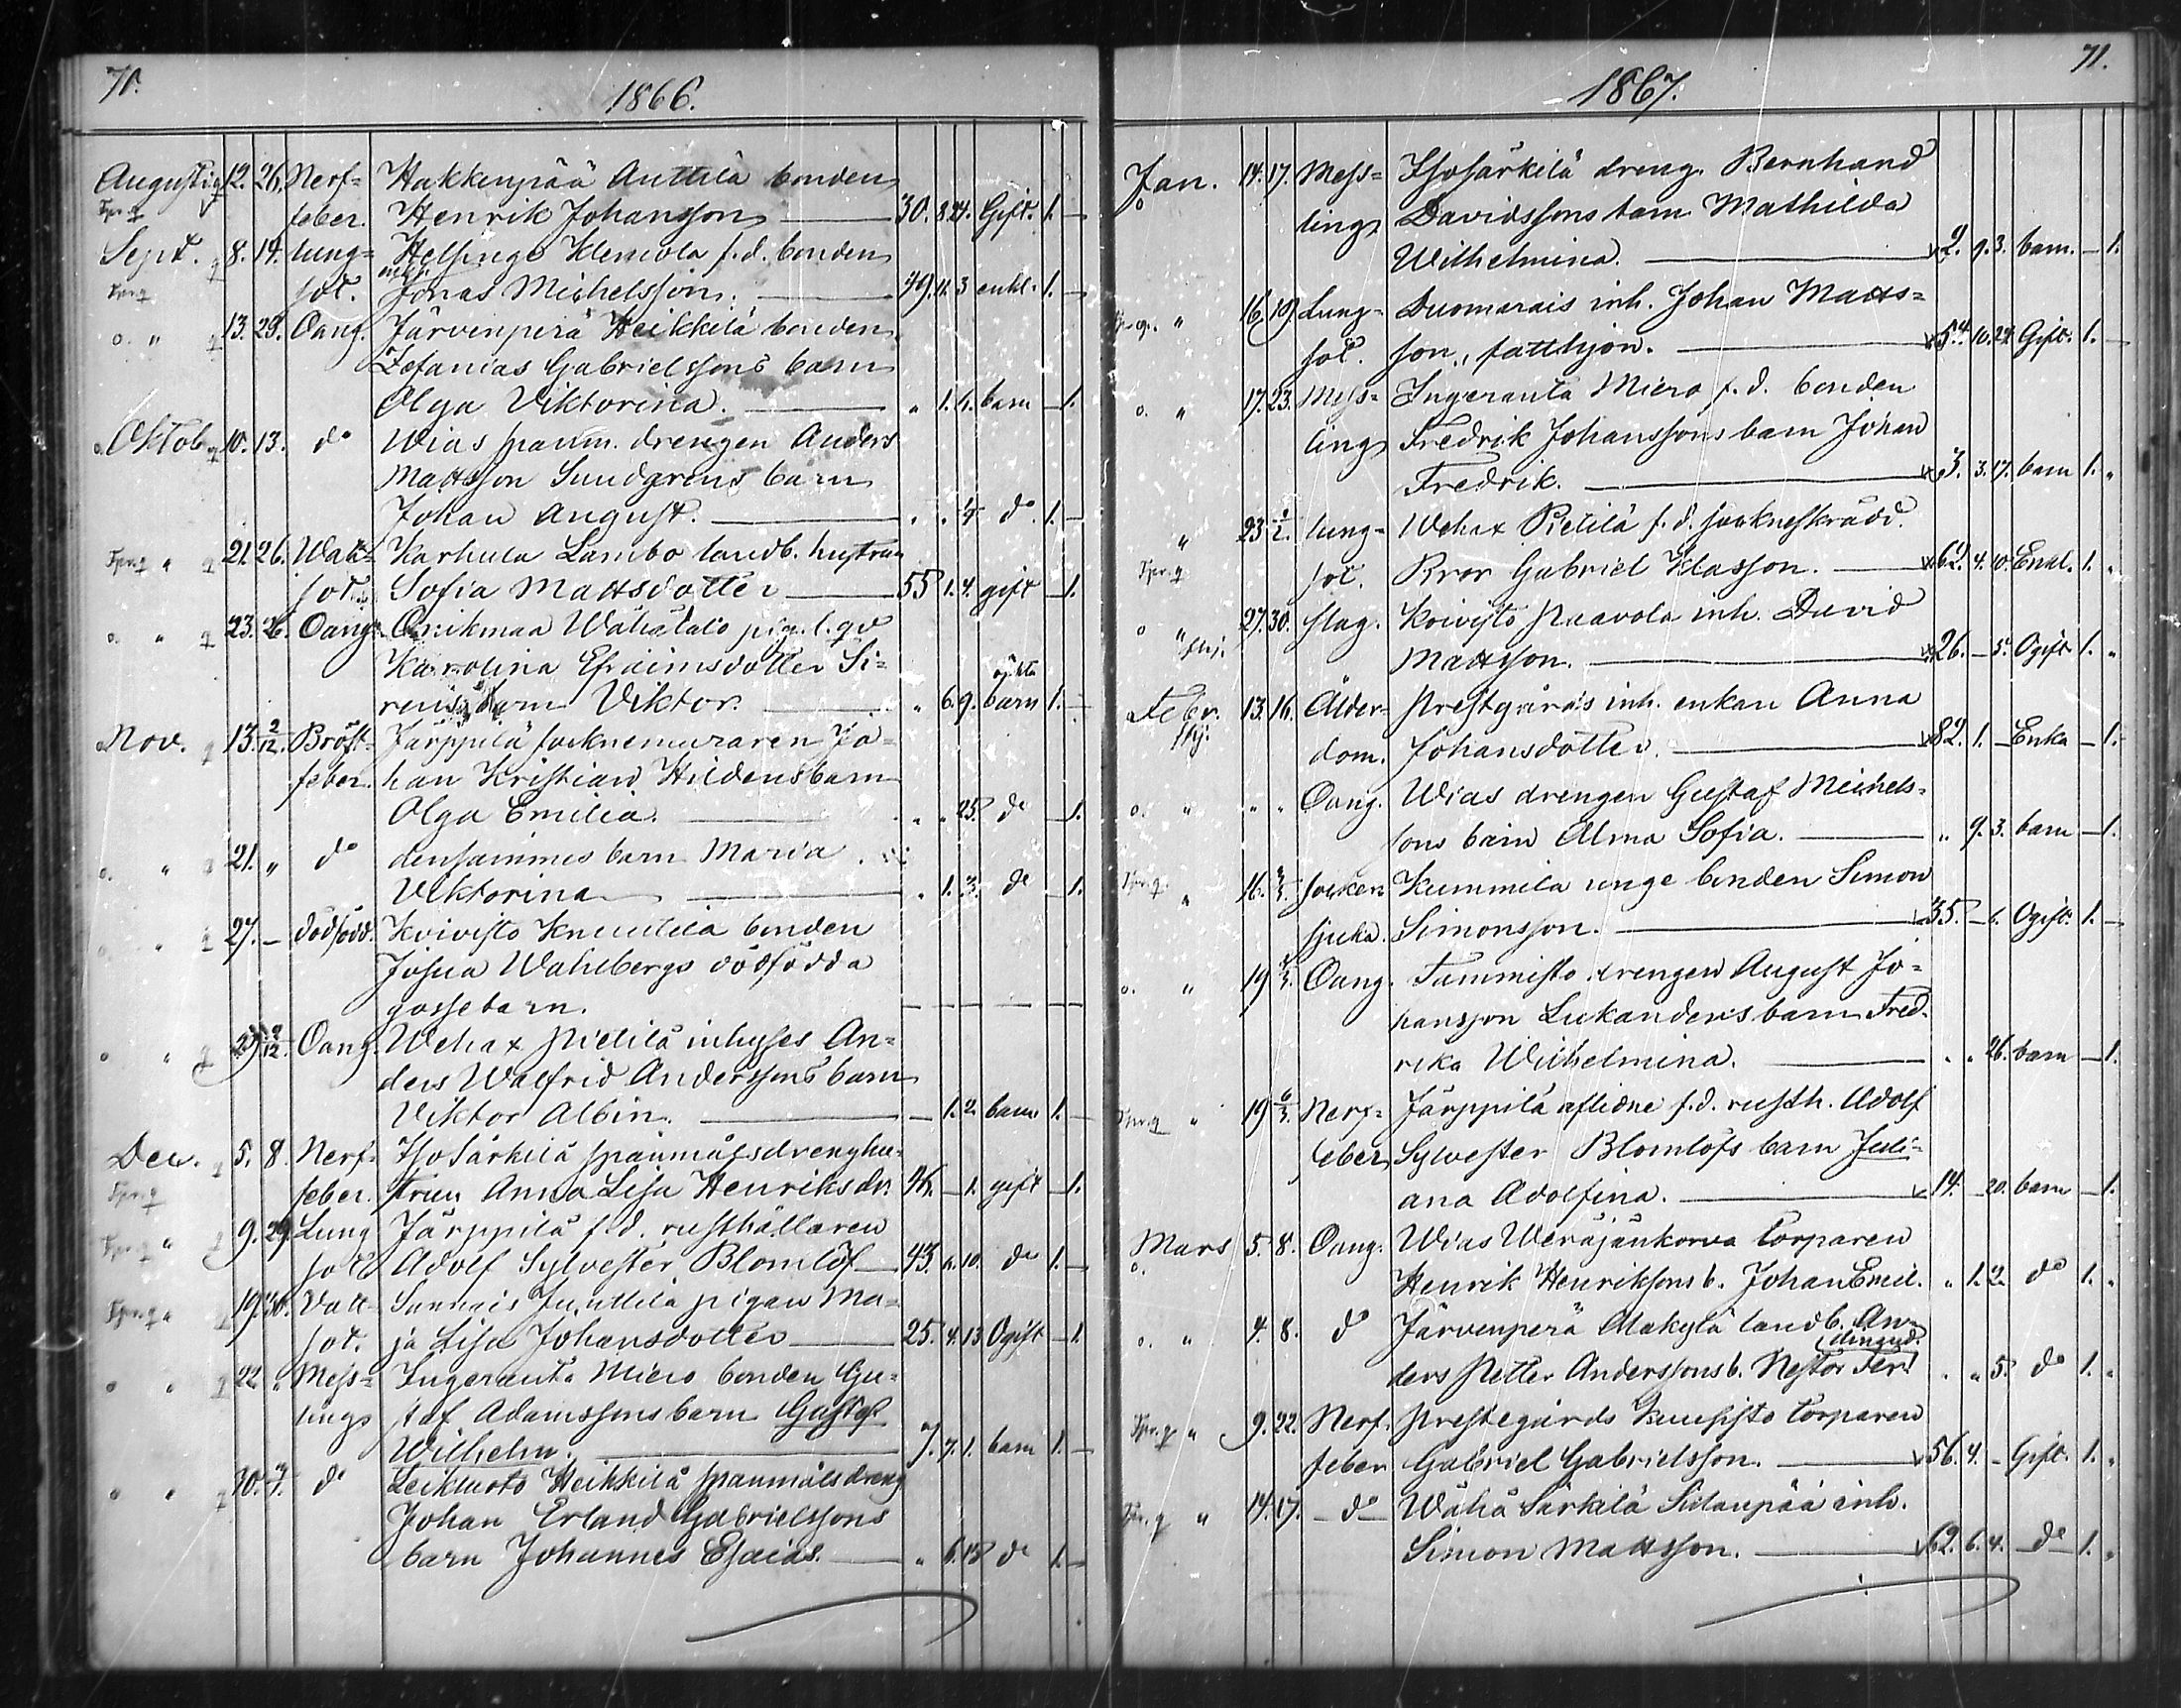 70.
1866.
Augusti 12. 26. Nerf- Hakkenpää Anttila bonden
feber. Henrik Johansson 30. 8. 24. Gift. 1. —
Sept. 8. 14. lung- Helsinge Klemola f.d. bonden
sot. Jonas Michelsson. 49. 11. 3 enkl. 1. —
o. " 13. 23. Oang. Järvenperä Heikkilä bonden
Zefanias Gabrielssons barn
Olga Viktorina. " 1. 6. barn — 1.
Oktob. 10. 13. do Wias spanm. drengen Anders
Mattsson Sundgrens barn
Johan August. " " 4 do. 1. —
" 21. 26. Watt- Karhula Lambo landb. hustrun
sot. Sofia Mattsdotter 55 1. 4. gift — 1.
o. " 23. 26. Oang. Orikmaa Wähätalo pig. l. qv
Karolina Efraimsdotter Si-
rens barn Viktor. oäkta
" 6. 9. barn 1. —
Nov. 13. 2/12. Bröst- Järppilä socknemuraren Jo-
feber. han Kristian Hildens barn
Olga Emilia. " " 25. do — 1.
o. " 21. " do densammes barn Maria
Viktorina " 1. 3. do — 1.
27. — dödfödd. Koivisto Knuutila bonden
Josua Wahlbergs dödfödda
gossebarn. — — — —
o " 29 2/12. Oang. Wehax Pietilä inhyses An-
ders Walfrid Anderssons barn
Viktor Albin. — 1. 2. barn 1. —
Dec. 5. 8. Nerf- Iso Särkilä spanmålsdrenghu-
feber. strun Anna Lisa Henriksdr. 46. — 1. gift — 1.
" 9. 29. Lung Järppilä f.d. rusthållaren
sot. Adolf Sylvester Blomlöf 43. 6. 10. do 1. —
" 19. 26. Vatt- Sannais Junttila pigan Ma-
sot. ja Lisa Johansdotter 25. 4. 13 Ogift — 1.
o " 22 " Mess- Ingeranta Miero bonden Gu-
lings staf Adamssons barn Gustaf
Wilhelm. 7. 7. 1. barn 1. —
" " 30. 7. do Leikluoto Heikkilä spanmålsdreng
Johan Erland Gabrielssons
barn Johannes Esaias. " 6. 18 do 1. —
71.
1867.
Jan. 14. 17. Mess- Iso Särkilä dreng. Bernhard
o lings Davidssons barn Mathilda
Wilhelmina. 2. 9. 3. barn. — 1.
" 16. 19. Lung- Duomarais inh. Johan Matts-
sot. son, fatthjon. 54. 10. 24 Gift. 1. —
o. " 17. 23. Mess- Ingeranta Miero f.d. bonden
lings Fredrik Johanssons barn Johan
Fredrik. 3. 3. 17. barn 1. "
" 23 lung- Wehax Pietilä f.d. sockneskrädd.
sot. Bror Gabriel Klasson. 62. 4. 10. Enkl. 1. "
o " 27. 30. slag. Koivisto Paavola inh. David
Mattsson. 26. — 5. Ogift 1. "
Febr. 13. 16. Ålder- Prestgårds inh. enkan Anna
dom. Johansdotter. 82. 1. — Enka — 1.
o. " " " Oang. Wias drengen Gustaf Michels-
sons barn Alma Sofia. " 9. 3. barn — 1.
" 16. 3/3. socker- Kummila unge bonden Simon
sjuka. Simonsson. 35. — 6. Ogift. 1. —
o. " 19 3/3. Oang. Tammisto drengen August Jo-
hansson Lukanders barn Fred-
rika Wilhelmina. " " 26. barn — 1.
" 19 6/3. Nerf- Järppilä aflidne f.d. rusth. Adolf
feber Sylvester Blomlöfs barn Juli-
ana Adolfina. 14. — 20. barn — 1.
Mars 5. 8. Oang. Wias Weräjänkorva torparen
o. Henrik Henrikssons b. Johan Emil. " 1. 2. do 1. "
o. " 4. 8. do Järvenperä Alakylä landb. An-
ders Petter Anderssons b. Nestor Fer-
dinand. " " 5. do 1. "
" 9. 22. Nerf- Prestegårds Kuusisto torparen
feber Gabriel Gabrielsson. 56. 4. — Gift. 1. "
" 14. 17. — do — Wähä Särkilä Sillanpää inh.
Simon Mattsson. 62. 6. 4. — do — 1. "